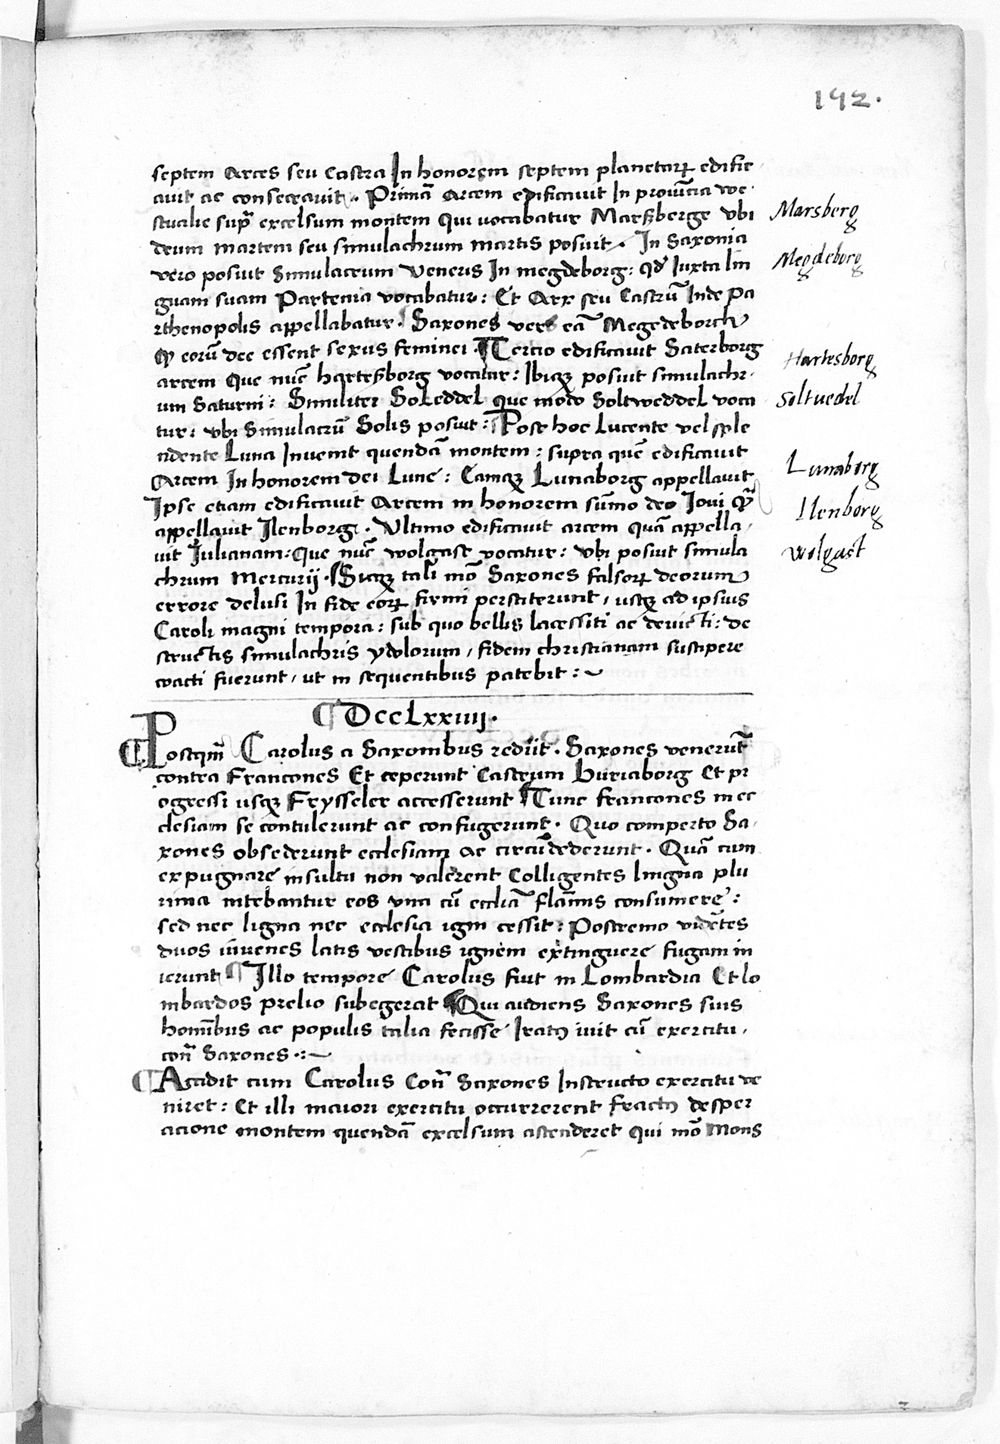 192.
septem arces seu castra In honorem septem planetarꝝ edific
auit ac consecrauit. Primā arcem edificauit In prouītia we
stualie supͣ excelsum montem qui uocabatur Marßberge vbi
Marsberg
deum martem seu simulachrum martis posuit. In Saxonia
vero posuit Simulacrum Veneris In megdeborg: qd' Iuxta lin
Megdeborg
guam suam Partenia vocabatur: Et Arx seu Castrū Inde Pa
rthenopolis appellabatur. Saxones vero eā Megedeborch
qꝫ eorū dee essent sexus feminei. ¶ Tercio edificauit Saterborg
Hartesborg
arcem Que nūc harteßborg vocatur: Ibiqꝫ posuit simulachr
um Saturni: Similiter Soleddel que modo Soltweddel voca
Soltuedel
tur: vbi Simulacrū Solis posuit: Post hoc Lucente vel sple
ndente Luna Inuenit quendā montem: supra quē edificauit
Arcem In honorem dei Lune: Eamqꝫ Lunaborg appellauit
Lunaborg
Ipse etiam edificauit Arcem in honorem sūmo deo Ioui qꝫ
appellauit Ilenborg. Vltimo edificauit arcem quā appella
Ilenborg
uit Iulianam: Que nūc wolgast vocatur: vbi posuit simula
wolgast
chrum Mercurij. Sicqꝫ tali mō Saxones falsorꝝ deorum
errore delusi In fide eorꝝ firmi perstiterunt, usqꝫ ad ipsius
Caroli magni tempora: sub quo bellis lacessiti ac deuicti: de
structis simulachris ydolorum, fidem christianam suscipere
coacti fuerunt, ut in sequentibus patebit:~
¶ DccLxxiiij.
¶ Postqm̄ Carolus a Saxonibus redijt. Saxones venerūt
contra Francones Et ceperunt Castrum Buriaborg Et pr
ogressi usqꝫ Frysseler accesserunt ¶ Tunc francones in ec
clesiam se contulerunt ac confugerunt. Quo comperto Sa
xones obsederunt ecclesiam ac circūdederunt. Quā cum
expugnare insultu non valerent Colligentes lingna plu
rima nitebantur eos vna cū eccliā flāmis consumere:
sed nec ligna nec ecclesia igni cessit: Postremo vidētes
duos iuuenes latis vestibus ignem extinguere fugam in
ierunt ¶ Illo tempore Carolus fuit in Lombardia Et lo
mbardos prelio subegerat ¶ Qui audiens Saxones suis
homībus ac populis talia fecisse Iratꝫ iuit cū exercitu
conͣ Saxones.:~
¶ Accidit cum Carolus Conͣ Saxones Instructo exercitu ve
niret: Et illi maiori exercitu occurrerent fractꝫ desper
acione montem quendā excelsum ascenderet qui mō Mons